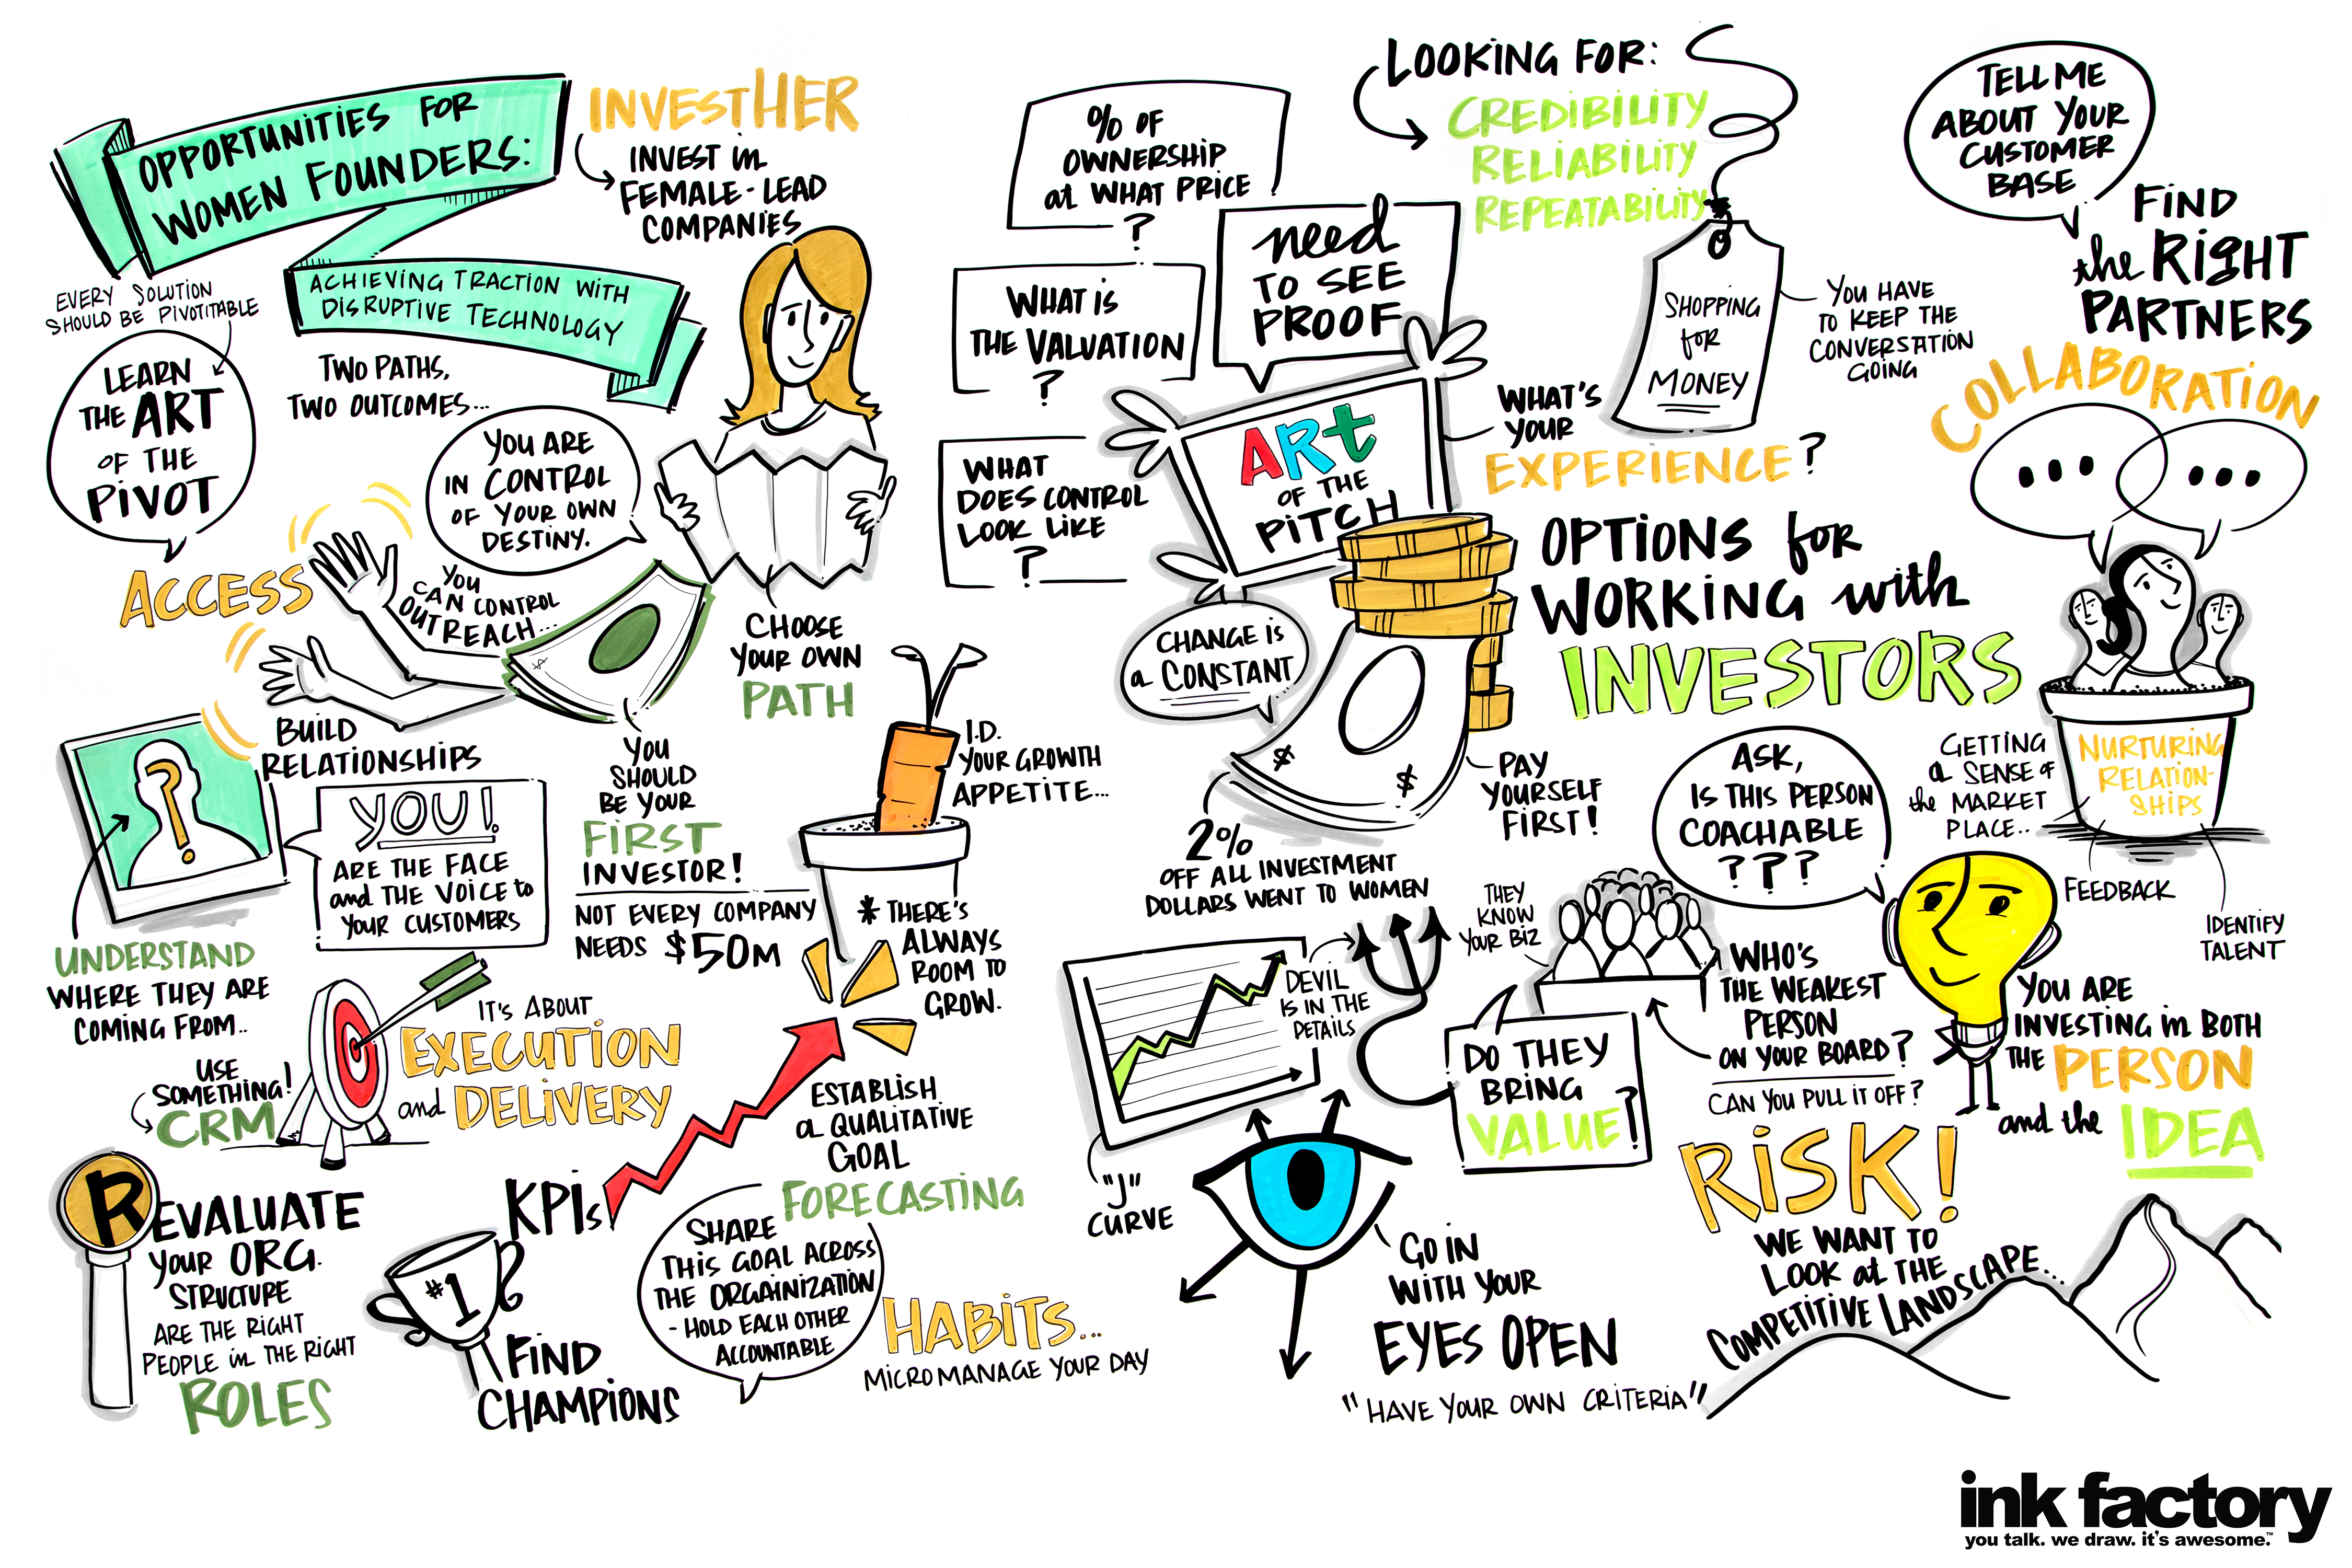 OPPORTUNITIES FOR
WOMEN FOUNDERS:
ACHIEVING TRACTION WITH
DISRUPTIVE TECHNOLOGY
INVESTHER
INVEST in
FEMALE-LEAD
COMPANIES
EVERY SOLUTION
SHOULD BE PIVOTITABLE
LEARN
THE ART
OF THE
PIVOT
TWO PATHS,
TWO OUTCOMES...
YOU ARE
IN CONTROL
OF YOUR OWN
DESTINY.
ACCESS
YOU
CAN CONTROL
OUTREACH...
$
CHOOSE
YOUR OWN
PATH
BUILD
RELATIONSHIPS
?
YOU!
ARE THE FACE
and THE VOICE to
YOUR CUSTOMERS
UNDERSTAND
WHERE THEY ARE
COMING FROM..
YOU
SHOULD
BE YOUR
FIRST
INVESTOR!
NOT EVERY COMPANY
NEEDS $50M
I.D.
YOUR GROWTH
APPETITE...
* THERE'S
ALWAYS
ROOM TO
GROW.
USE
SOMETHING!
CRM
IT'S ABOUT
EXECUTION
and DELIVERY
REVALUATE
YOUR ORG.
STRUCTURE
ARE THE RIGHT
PEOPLE in THE RIGHT
ROLES
KPIs
#1
FIND
CHAMPIONS
ESTABLISH
a QUALITATIVE
GOAL
FORECASTING
SHARE
THIS GOAL ACROSS
THE ORGAINIZATION
- HOLD EACH OTHER
ACCOUNTABLE
HABITS...
MICROMANAGE YOUR DAY
% OF
OWNERSHIP
at WHAT PRICE
?
WHAT IS
THE VALUATION
?
WHAT
DOES CONTROL
LOOK LIKE
?
need
TO SEE
PROOF
ART
OF THE
PITCH
LOOKING FOR:
CREDIBILITY
RELIABILITY
REPEATABILITY
SHOPPING
for
MONEY
YOU HAVE
TO KEEP THE
CONVERSATION
GOING
WHAT'S
YOUR
EXPERIENCE?
TELL ME
ABOUT YOUR
CUSTOMER
BASE
FIND
the RIGHT
PARTNERS
COLLABORATION
...
...
OPTIONS for
WORKING with
INVESTORS
CHANGE IS
a CONSTANT
$
$
PAY
YOURSELF
FIRST!
2%
OFF ALL INVESTMENT
DOLLARS WENT TO WOMEN
ASK,
IS THIS PERSON
COACHABLE
???
GETTING
a SENSE of
the MARKET
PLACE..
NURTURING
RELATION-
SHIPS
FEEDBACK
IDENTIFY
TALENT
THEY
KNOW
YOUR BIZ
DEVIL
IS IN THE
DETAILS
"J"
CURVE
DO THEY
BRING
VALUE?
WHO'S
THE WEAKEST
PERSON
ON YOUR BOARD?
CAN YOU PULL IT OFF?
YOU ARE
INVESTING in BOTH
THE PERSON
and the IDEA
GO IN
WITH YOUR
EYES OPEN
"HAVE YOUR OWN CRITERIA"
RISK!
WE WANT TO
LOOK at THE
COMPETITIVE LANDSCAPE...
ink factory
you talk. we draw. it's awesome.™